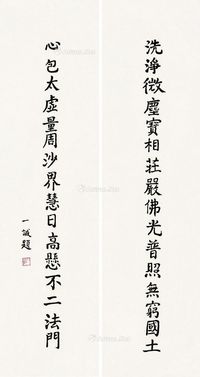 洗淨微塵寶相莊嚴佛光普照無窮國土
心包太虛量周沙界慧日高懸不二法門
一誠題